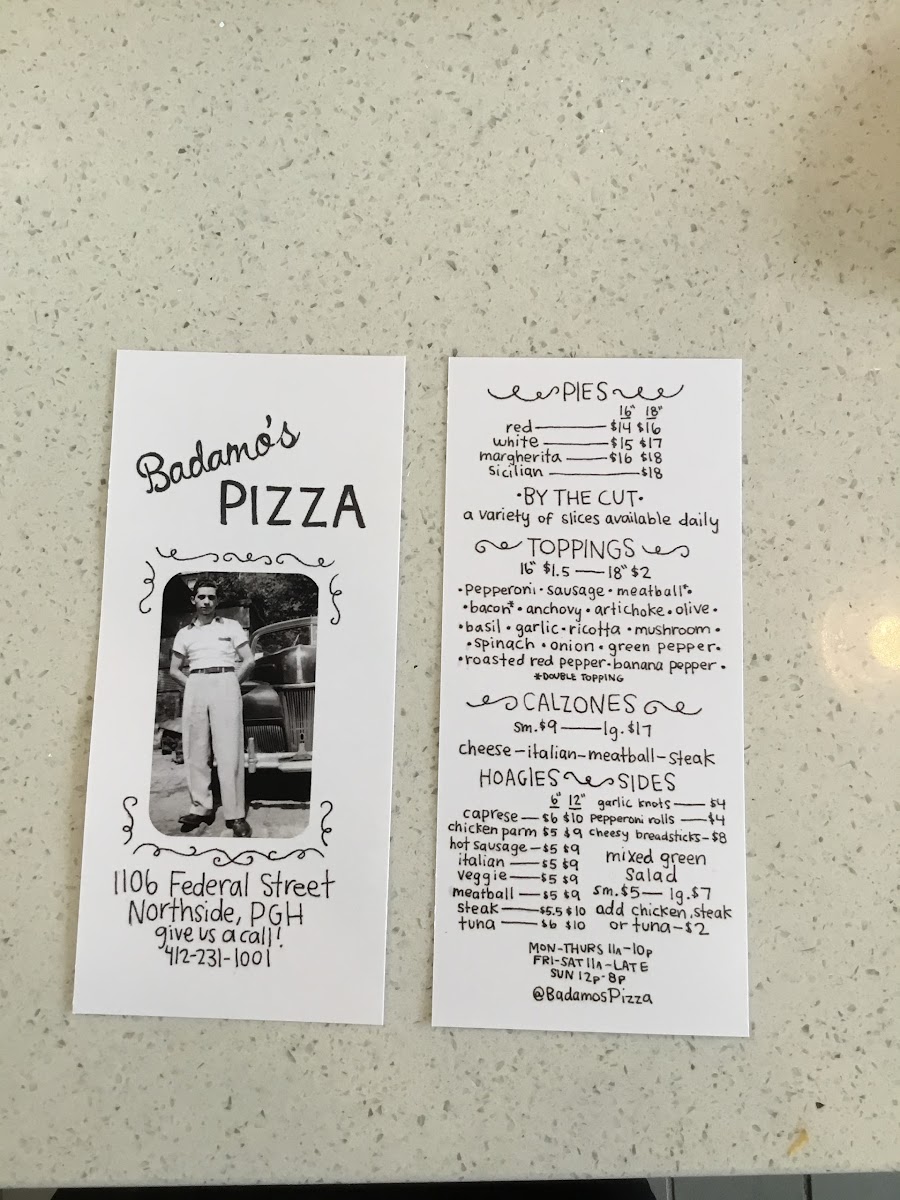 Badamo's
PIZZA
1106 Federal Street
Northside, PGH
give us a call!
412-231-1001
PIES
16" 18"
red $14 $16
white $15 $17
margherita $16 $18
sicilian $18
•BY THE CUT•
a variety of slices available daily
TOPPINGS
16" $1.5 — 18" $2
•pepperoni•sausage•meatball*•
•bacon*•anchovy•artichoke•olive•
•basil•garlic•ricotta•mushroom•
•spinach•onion•green pepper•
•roasted red pepper•banana pepper•
*DOUBLE TOPPING
CALZONES
sm.$9 — lg.$17
cheese-italian-meatball-steak
HOAGIES
6" 12"
caprese — $6 $10
chicken parm $5 $9
hot sausage — $5 $9
italian — $5 $9
veggie — $5 $9
meatball — $5 $9
steak — $5.5 $10
tuna — $6 $10
SIDES
garlic knots — $4
pepperoni rolls — $4
cheesy breadsticks - $8
mixed green
salad
sm.$5 — lg.$7
add chicken, steak
or tuna - $2
MON-THURS 11A-10P
FRI-SAT 11A-LATE
SUN 12P-8P
@BadamosPizza